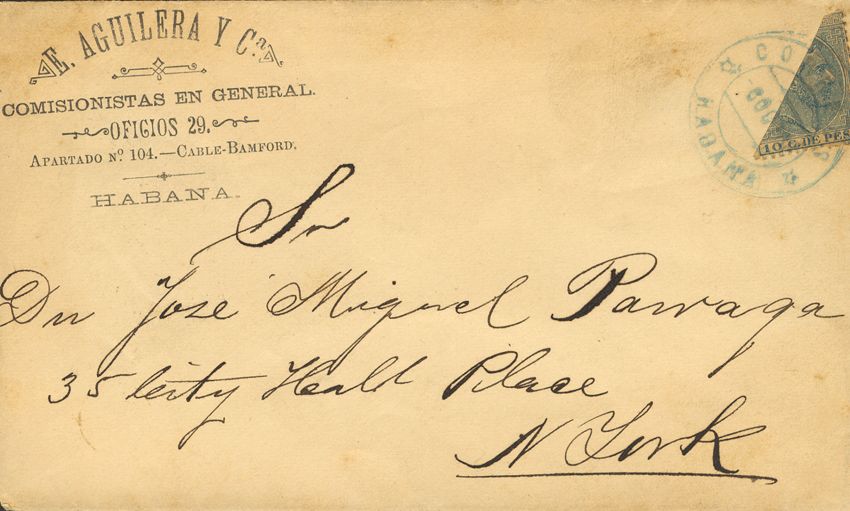 E. AGUILERA Y Ca.
COMISIONISTAS EN GENERAL.
OFICIOS 29.
APARTADO Nº 104.—CABLE-BAMFORD.
HABANA.
HABANA
10 C. DE PES
Sr
Dn José Miguel Parraga
35 City Hald Place
N York